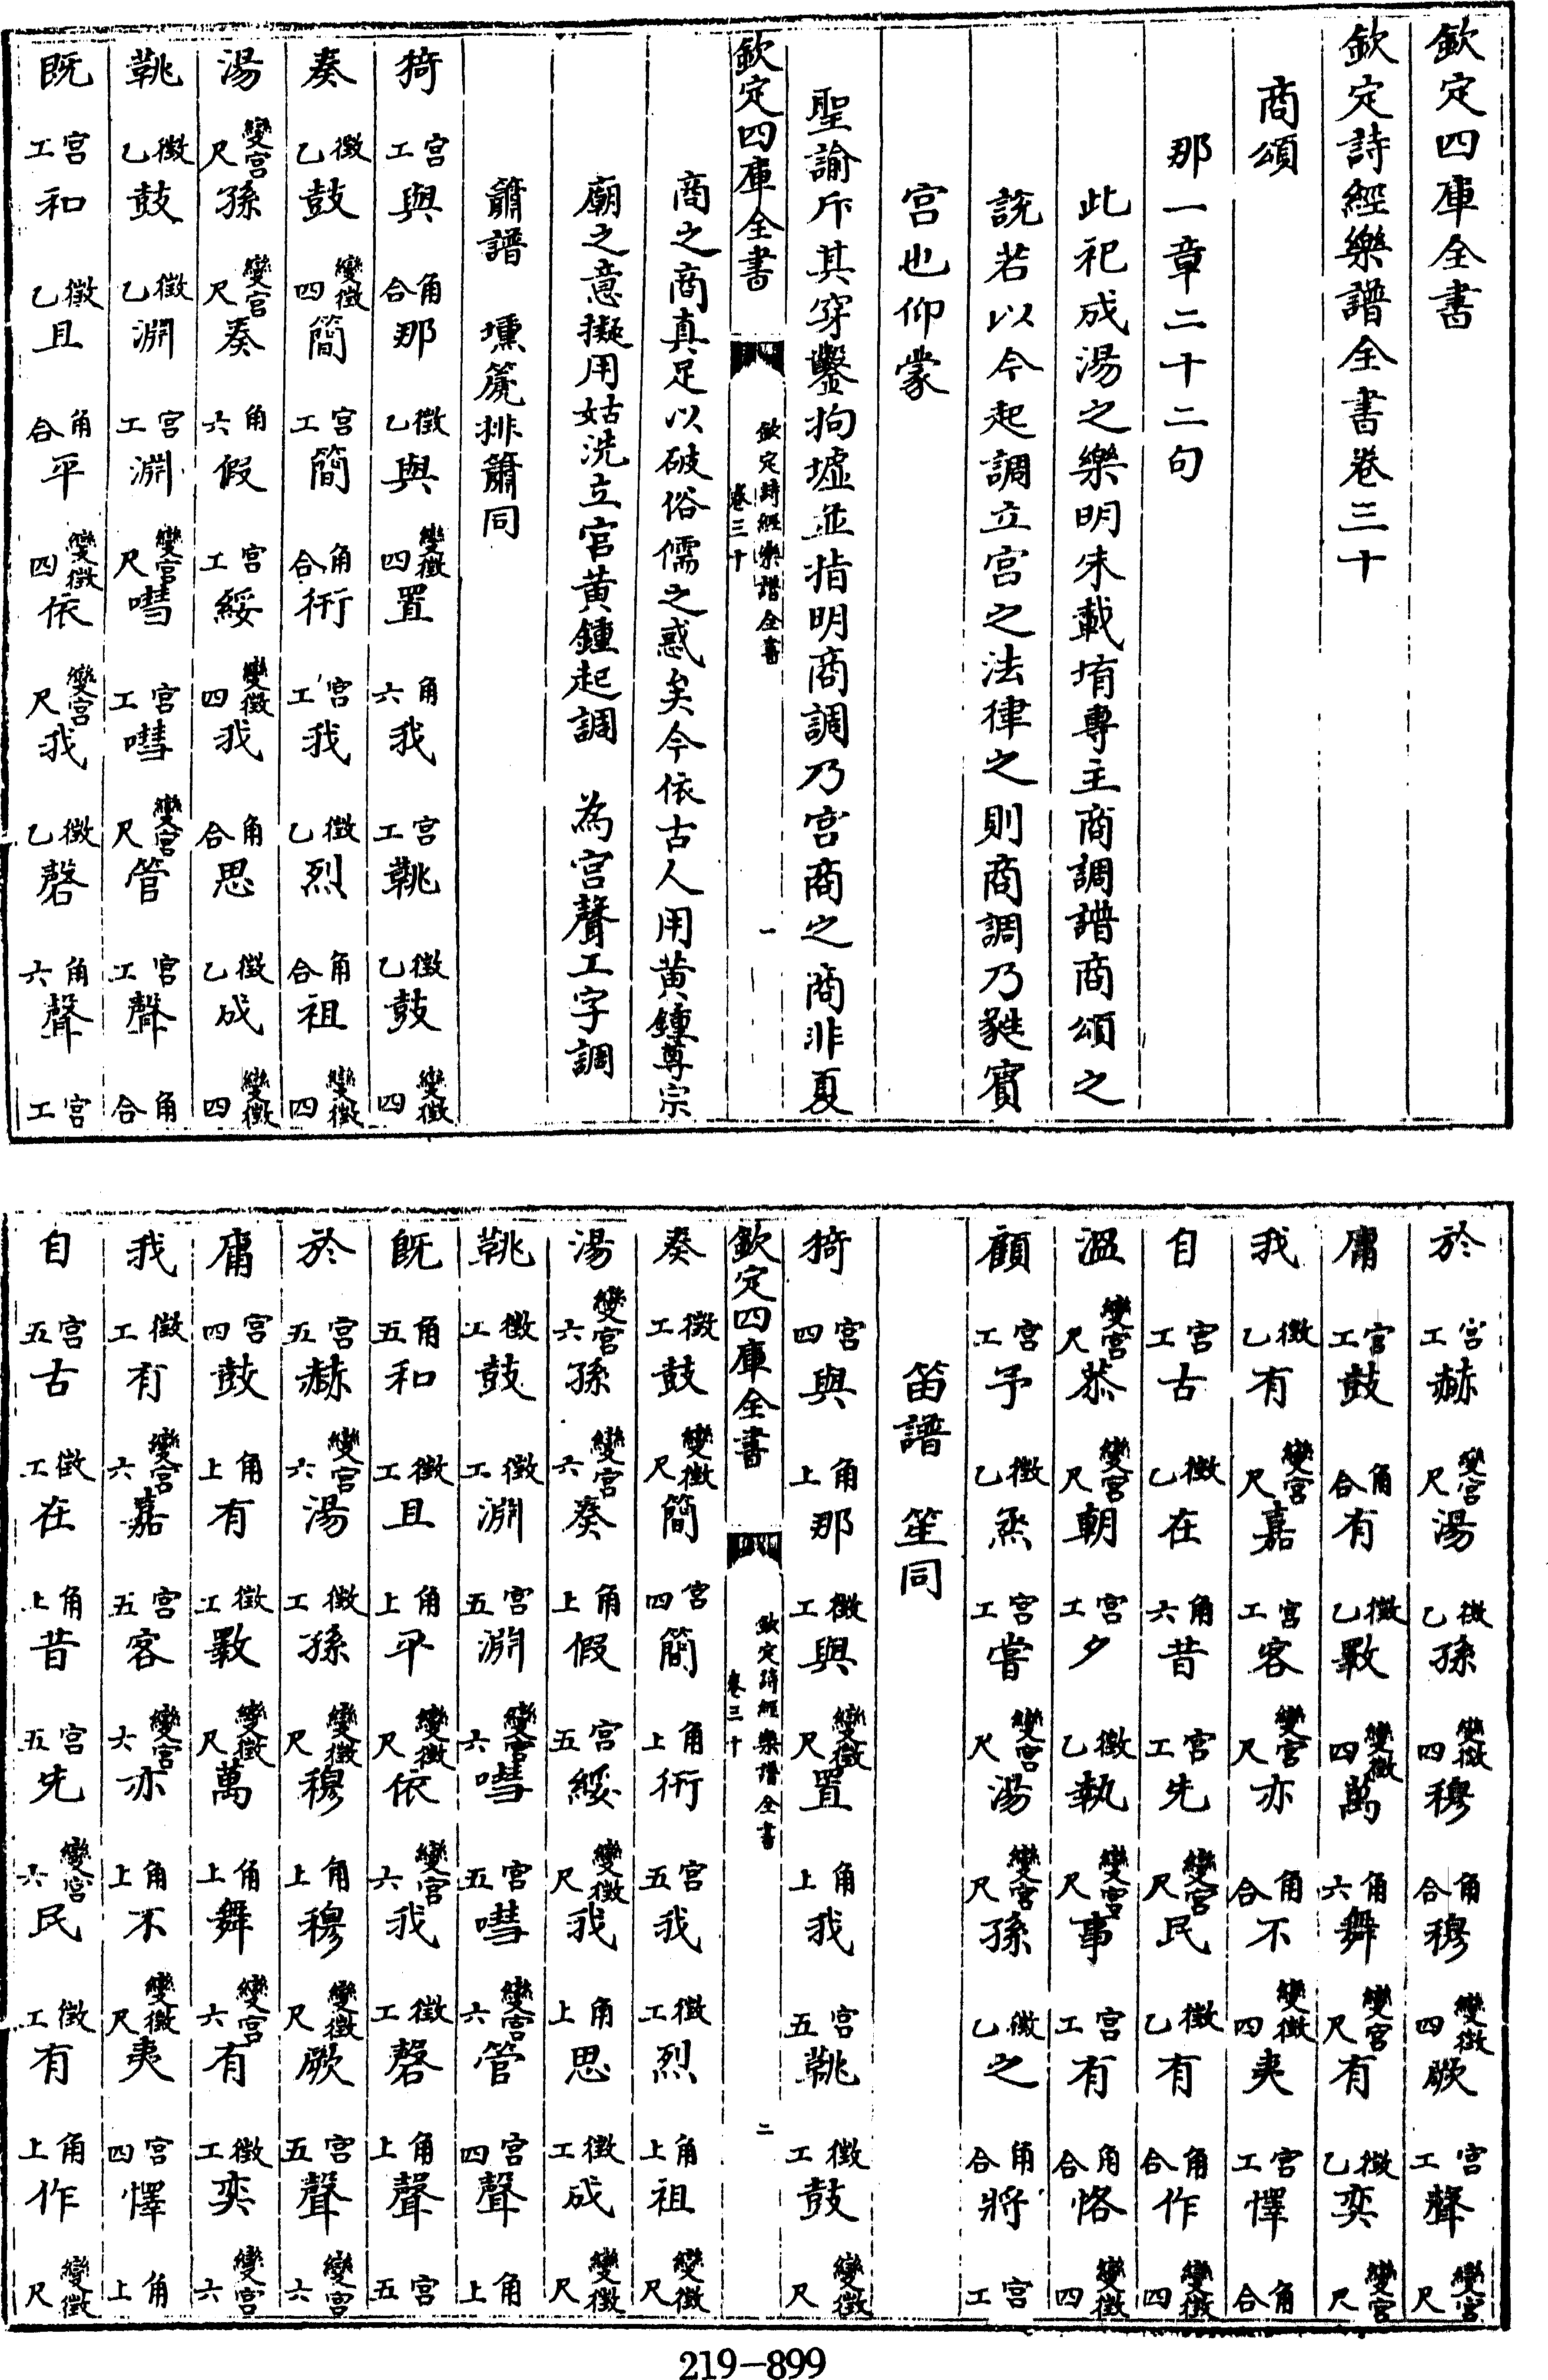 欽定四庫全書
欽定詩經樂譜全書卷三十
商頌
那一章二十二句
此祀成湯之樂明朱載堉專主商調譜商頌之
說若以今起調立宮之法律之則商調乃蕤賓
宮也仰蒙
聖諭斥其穿鑿拘墟並指明商調乃宮商之商非夏
欽定四庫全書 欽定詩經樂譜全書 卷三十 一
商之商真足以破俗儒之惑矣今依古人用黃鍾尊宗
廟之意擬用姑洗立宮黃鍾起調 為宮聲工字調
簫譜 壎篪排簫同
猗 宮工 與 角合 那 徵乙 與 變徵四 置 角六 我 宮工 鞉 徵乙 鼓 變徵四
奏 徵乙 鼓 變徵四 簡 宮工 簡 角合 衎 宮工 我 徵乙 烈 角合 祖 變徵四
湯 變宮尺 孫 變宮尺 奏 角六 假 宮工 綏 變徵四 我 角合 思 徵乙 成 變徵四
鞉 徵乙 鼓 徵乙 淵 宮工 淵 變宮尺 嘒 宮工 嘒 變宮尺 管 宮工 聲 角合
既 宮工 和 徵乙 且 角合 平 變徵四 依 變宮尺 我 徵乙 磬 角六 聲 宮工
於 宮工 赫 變宮尺 湯 徵乙 孫 變徵四 穆 角合 穆 變徵四 厥 宮工 聲 變宮尺
庸 宮工 鼓 角合 有 徵乙 斁 變徵四 萬 角六 舞 變宮尺 有 徵乙 奕 變宮尺
我 徵乙 有 變宮尺 嘉 宮工 客 變宮尺 亦 角合 不 變徵四 夷 宮工 懌 角合
自 宮工 古 徵乙 在 角六 昔 宮工 先 變宮尺 民 徵乙 有 角合 作 變徵四
溫 變宮尺 恭 變宮尺 朝 宮工 夕 徵乙 執 變宮尺 事 宮工 有 角合 恪 變徵四
顧 宮工 予 徵乙 烝 宮工 嘗 變宮尺 湯 變宮尺 孫 徵乙 之 角合 將 宮工
笛譜 笙同
猗 宮四 與 角上 那 徵工 與 變徵尺 置 角上 我 宮五 鞉 徵工 鼓 變徵尺
欽定四庫全書 欽定詩經樂譜全書 卷三十 二
奏 徵工 鼓 變徵尺 簡 宮四 簡 角上 衎 宮五 我 徵工 烈 角上 祖 變徵尺
湯 變宮六 孫 變宮六 奏 角上 假 宮五 綏 變徵尺 我 角上 思 徵工 成 變徵尺
鞉 徵工 鼓 徵工 淵 宮五 淵 變宮六 嘒 宮五 嘒 變宮六 管 宮四 聲 角上
既 角五 和 徵工 且 角上 平 變徵尺 依 變宮六 我 徵工 磬 角上 聲 宮五
於 宮五 赫 變宮六 湯 徵工 孫 變徵尺 穆 角上 穆 變徵尺 厥 宮五 聲 變宮六
庸 宮四 鼓 角上 有 徵工 斁 變徵尺 萬 角上 舞 變宮六 有 徵工 奕 變宮六
我 徵工 有 變宮六 嘉 宮五 客 變宮六 亦 角上 不 變徵尺 夷 宮四 懌 角上
自 宮五 古 徵工 在 角上 昔 宮五 先 變宮六 民 徵工 有 角上 作 變徵尺
219-899